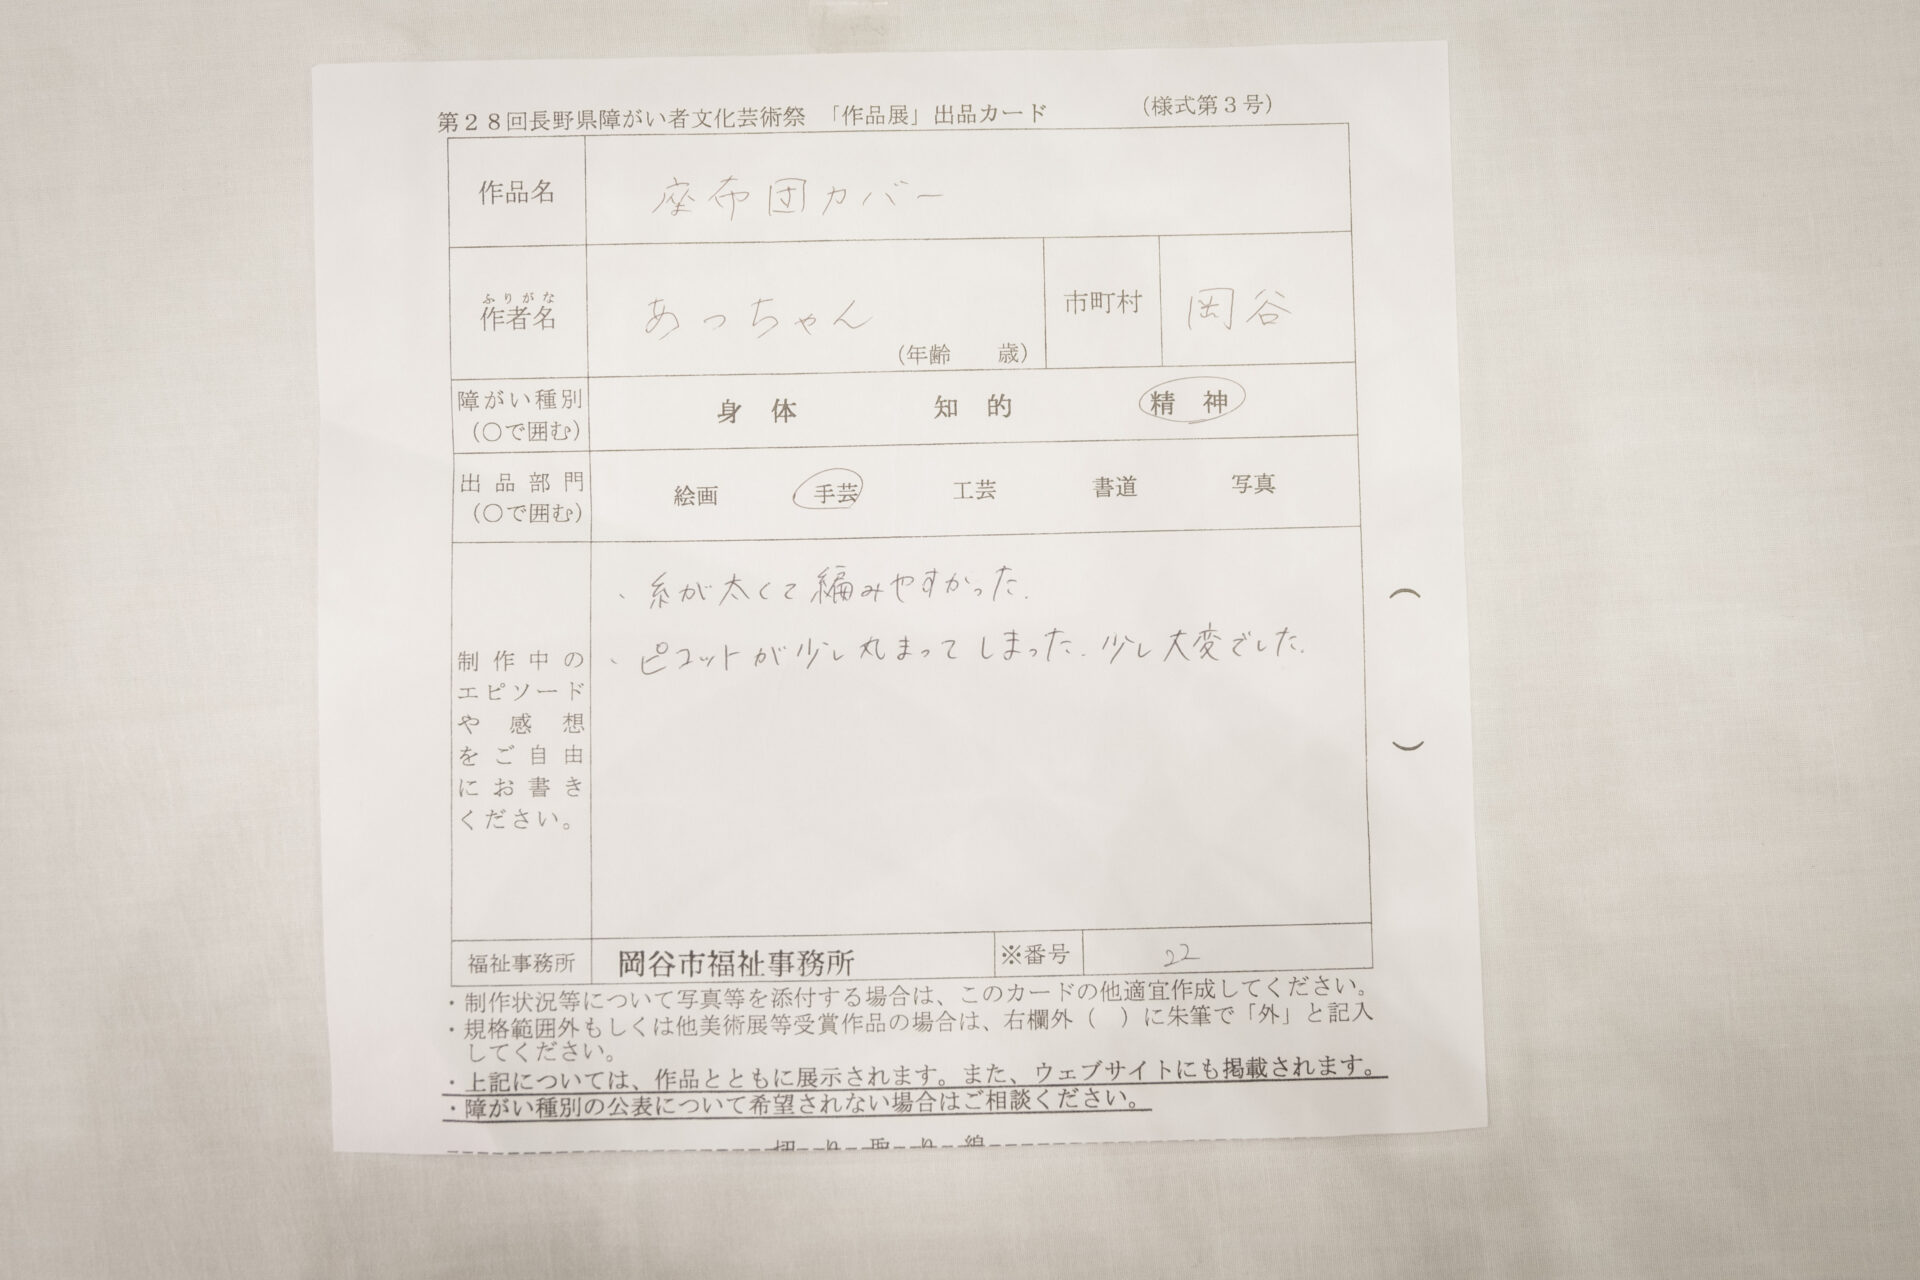 第２８回長野県障がい者文化芸術祭 「作品展」出品カード （様式第３号）
作品名 座布団カバー
ふりがな
作者名 あっちゃん （年齢 歳） 市町村 岡谷
障がい種別 身体 知的 精神
（○で囲む）
出品部門 絵画 手芸 工芸 書道 写真
（○で囲む）
・糸が太くて編みやすかった.
・ピコットが少し丸まってしまった. 少し大変でした.
制作中の
エピソード
や感想
をご自由
にお書き
ください。
（ ）
福祉事務所 岡谷市福祉事務所 ※番号 22
・制作状況等について写真等を添付する場合は、このカードの他適宜作成してください。
・規格範囲外もしくは他美術展等受賞作品の場合は、右欄外（ ）に朱筆で「外」と記入
してください。
・上記については、作品とともに展示されます。また、ウェブサイトにも掲載されます。
・障がい種別の公表について希望されない場合はご相談ください。
切り取り線